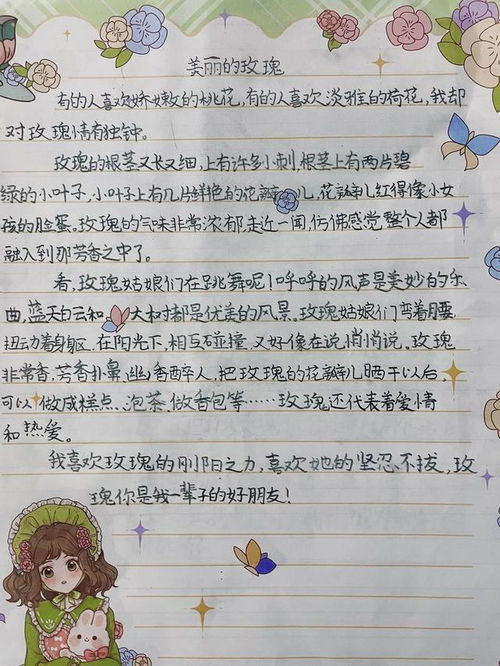 美丽的玫瑰
有的人喜欢娇嫩的桃花,有的人喜欢淡雅的荷花,我却
对玫瑰情有独钟。
玫瑰的根茎又长又细,上有许多小刺,根茎上有两片碧
绿的小叶子,小叶子上有几片鲜艳的花瓣儿,花瓣儿红得像小女
孩的脸蛋。玫瑰的气味非常浓郁,走近一闻,仿佛感觉整个人都
融入到那芳香之中了。
看,玫瑰姑娘们在跳舞呢!呼呼的风声是美妙的乐
曲,蓝天白云和大树都是优美的风景。玫瑰姑娘们弯着腰
扭动着身躯,在阳光下,相互碰撞,又好像在说悄悄说。玫瑰
非常香,芳香扑鼻,幽香醉人,把玫瑰的花瓣儿晒干以后,
可以做成糕点、泡茶、做香包等……玫瑰还代表着爱情
和热爱。
我喜欢玫瑰的刚阳之力,喜欢她的坚忍不拔,玫
瑰你是我一辈子的好朋友!